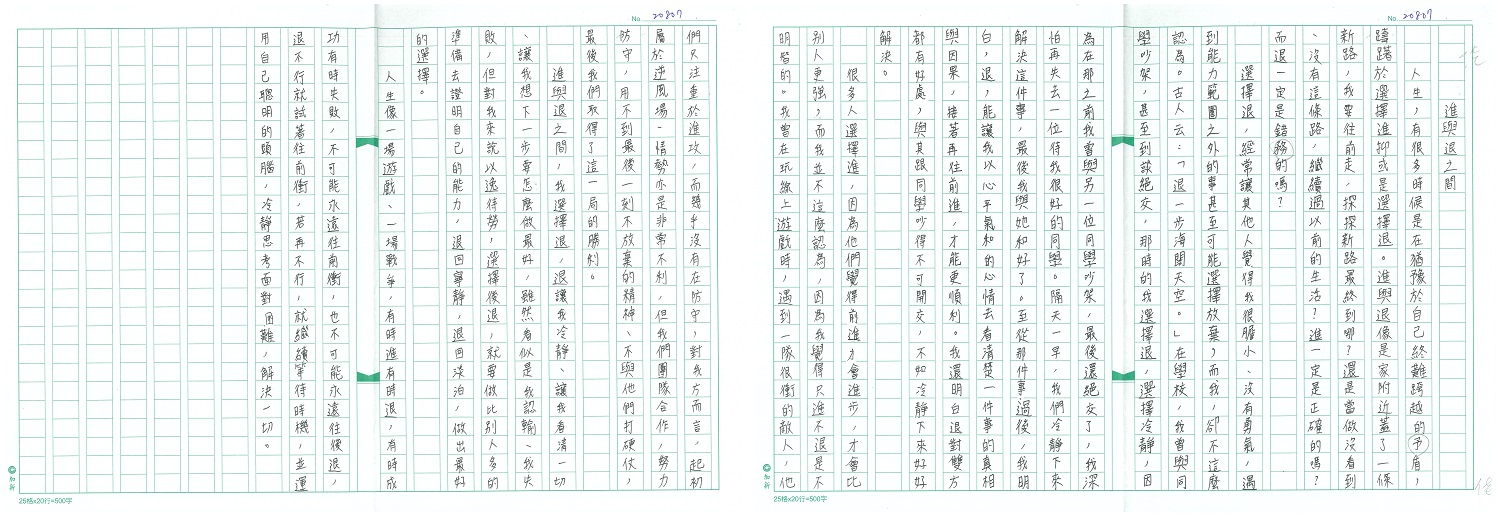 No 20807
進與退之間
人生，有很多時候是在猶豫於自己終難跨越的予盾，
躊躇於選擇進抑或是選擇退。進與退像是家附近蓋了一條
新路，我要往前走，探探新路最終到哪？還是當做沒看到
、沒有這條路，繼續過以前的生活？進一定是正確的嗎？
而退一定是錯務的嗎？
選擇退，經常讓其他人覺得我很膽小、沒有勇氣，遇
到能力範圍之外的事甚至可能選擇放棄，而我，卻不這麼
認為。古人云：「退一步海闊天空。」在學校，我曾與同
學吵架，甚至到談絕交，那時的我選擇退，選擇冷靜，因
為在那之前我曾與另一位同學吵架，最後還絕交了，我深
怕再失去一位待我很好的同學。隔天一早，我們冷靜下來
解決這件事，最後我與她和好了。至從那件事過後，我明
白，退，能讓我以心平氣和的心情去看清楚一件事的真相
與因果，接著再往前進，才能更順利。我還明白退對雙方
都有好處，與其跟同學吵得不可開交，不如冷靜下來好好
解決。
很多人選擇進，因為他們覺得前進才會進步，才會比
別人更強，而我並不這麼認為，因為我覺得只進不退是不
明智的。我曾在玩線上遊戲時，遇到一隊很衝的敵人，他
25格x20行=500字
No 20807
們只注重於進攻，而幾乎沒有在防守，對我方而言，起初
屬於逆風場，情勢亦是非常不利，但我們團隊合作，努力
防守，用不到最後一刻不放棄的精神、不與他們打硬仗，
最後我們取得了這一局的勝利。
進與退之間，我選擇退，退讓我冷靜、讓我看清一切
、讓我想下一步要怎麼做最好，雖然看似是我認輸、我失
敗，但對我來說以逸待勞，選擇後退，就要做比別人多的
準備去證明自己的能力，退回寧靜，退回淡泊，做出最好
的選擇。
人生像一場遊戲、一場戰爭，有時進有時退，有時成
功有時失敗，不可能永遠往前衝，也不可能永遠往後退，
退不行就試著往前衝，若再不行，就繼續等待時機，並運
用自己聰明的頭腦，冷靜思考面對困難，解決一切。
25格x20行=500字